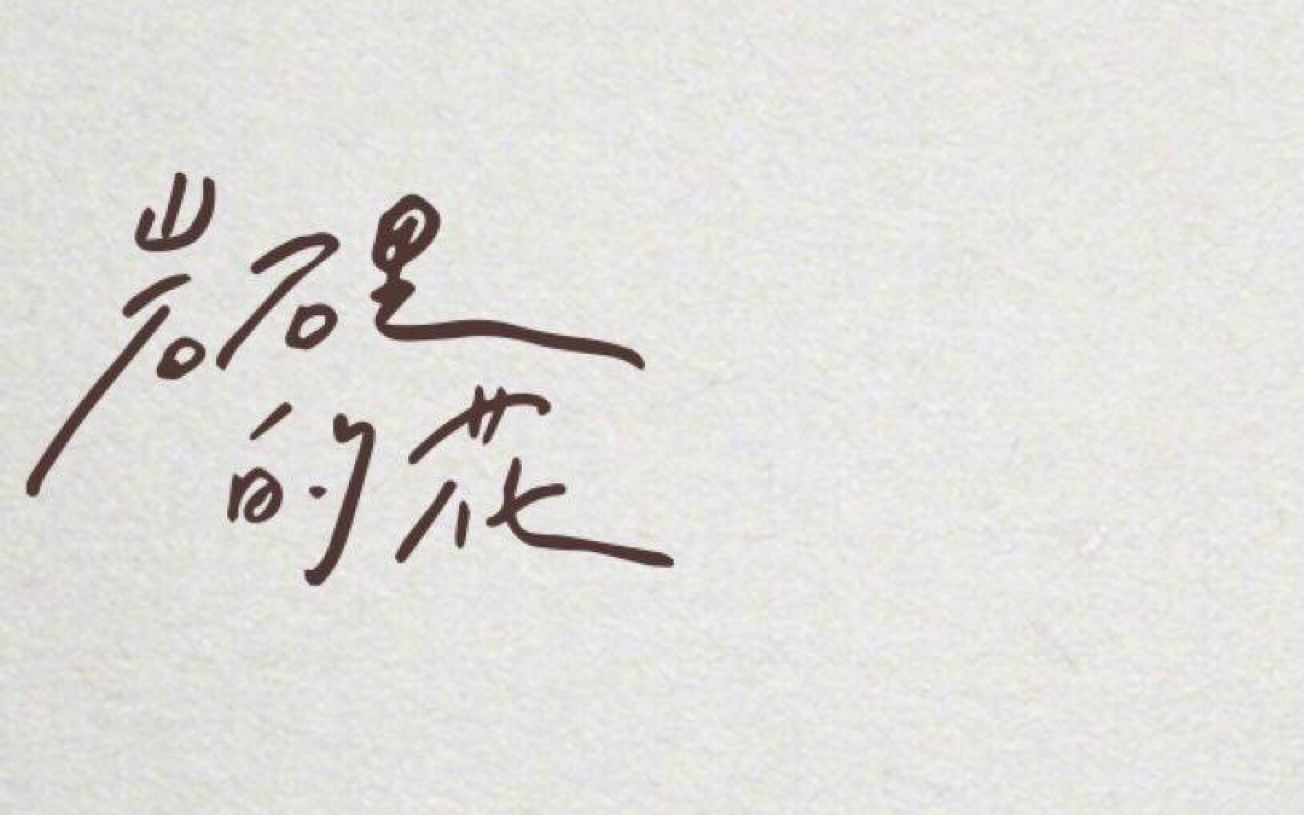 岩石里
的花